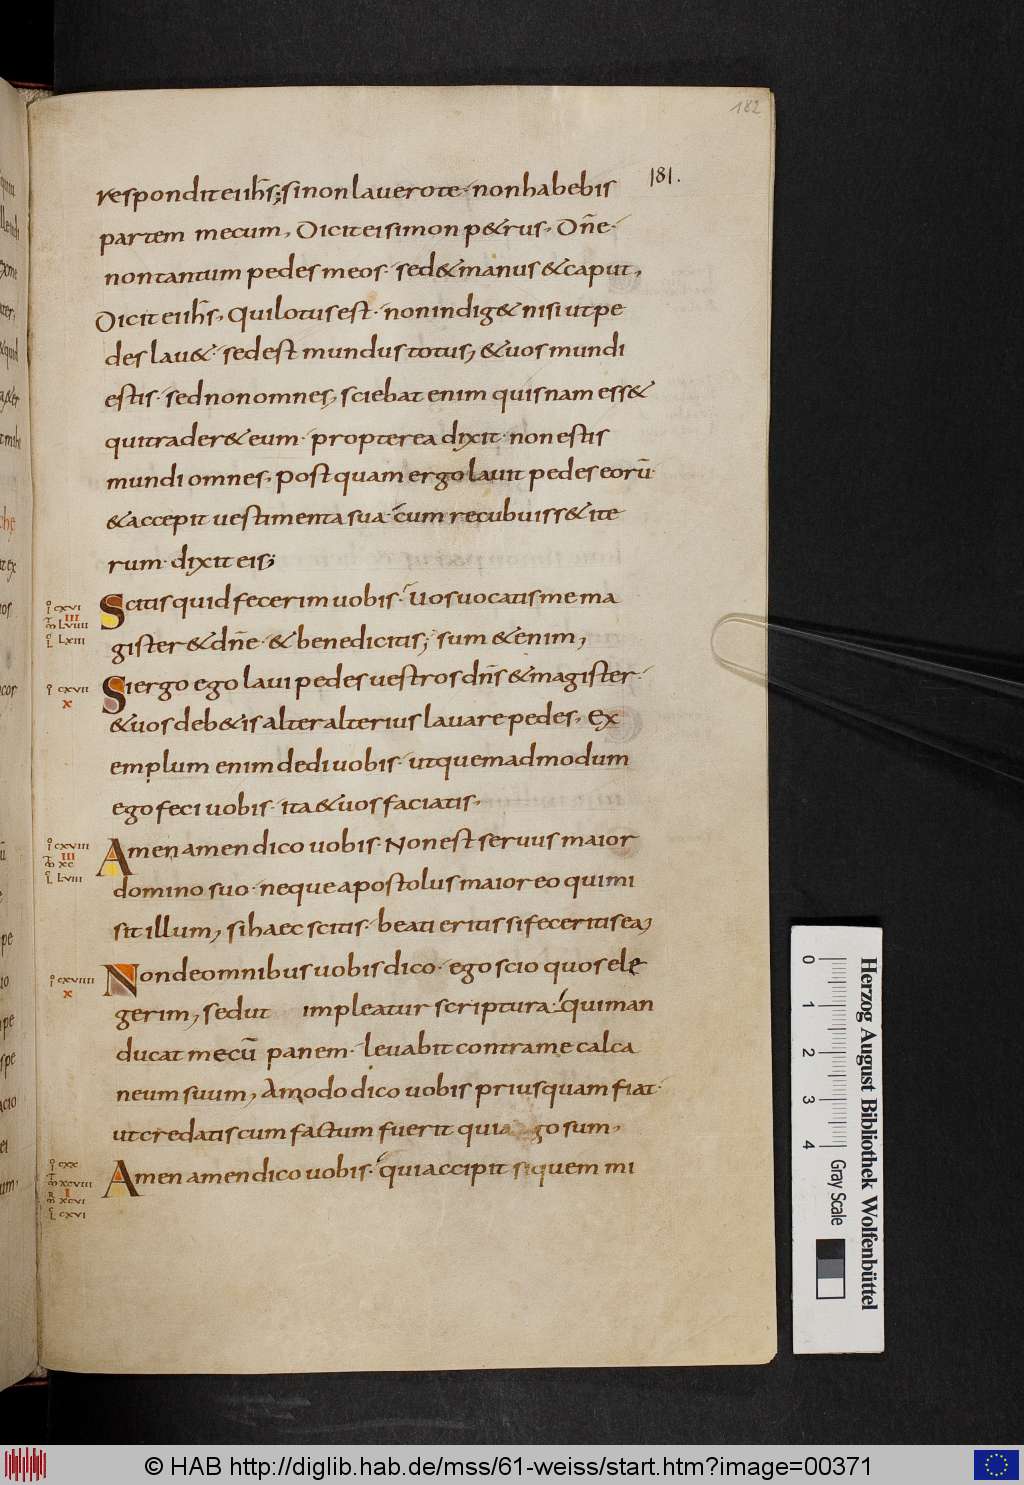 182
181.
respondit ei ihs; si non lauero te· non habebis
partem mecum, Dicit ei simon p&rus, Dne·
non tantum pedes meos· sed & manus & caput,
Dicit ei ihs, Qui lotus est· non indig& nisi ut pe
des lau&· sed est mundus totus, & uos mundi
estis· sed non omnes, sciebat enim quisnam ess&
qui trader& eum· propterea dixit· non estis
mundi omnes, postquam ergo lauit pedes eorū·
& accepit uestimenta sua· cum recubuiss& ite
rum· dixit eis;
Scitis quid fecerim uobis· Uos uocatis me ma
gister & dne· & benedicitis; sum & enim,
Si ergo ego laui pedes uestros dns & magister·
& uos deb&is alter alterius lauare pedes, Ex
emplum enim dedi uobis· ut quemadmodum
ego feci uobis· ita & uos faciatis,
Amen amen dico uobis· Non est seruus maior
domino suo· neque apostolus maior eo qui mi
sit illum, si haec scitis· beati eritis si feceritis ea,
Non de omnibus uobis dico· ego scio quos ele
gerim, sed ut impleatur scriptura· qui man
ducat mecū panem· leuabit contra me calca
neum suum, Amodo dico uobis priusquam fiat·
ut credatis cum factum fuerit quia go sum,
Amen amen dico uobis· qui accipit siquem mi
CXVI
III
LVIIII
LXIII
CXVII
X
CXVIII
III
XC
LVIII
CXVIIII
X
CXX
I
XCVIII
XCVI
CXVI
0 1 2 3 4
Gray Scale
Herzog August Bibliothek Wolfenbüttel
© HAB http://diglib.hab.de/mss/61-weiss/start.htm?image=00371